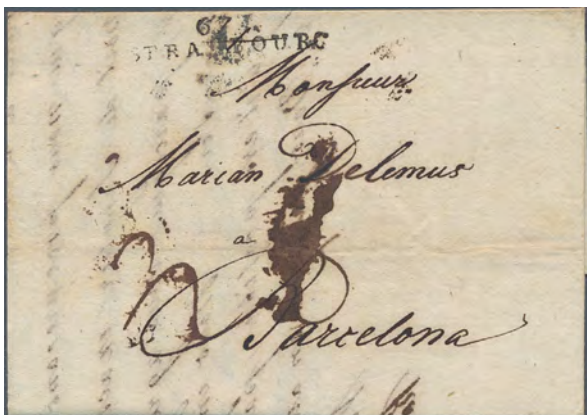 67
STRASBOURG
Monsieur
Marian Delemus
a
Barcelona